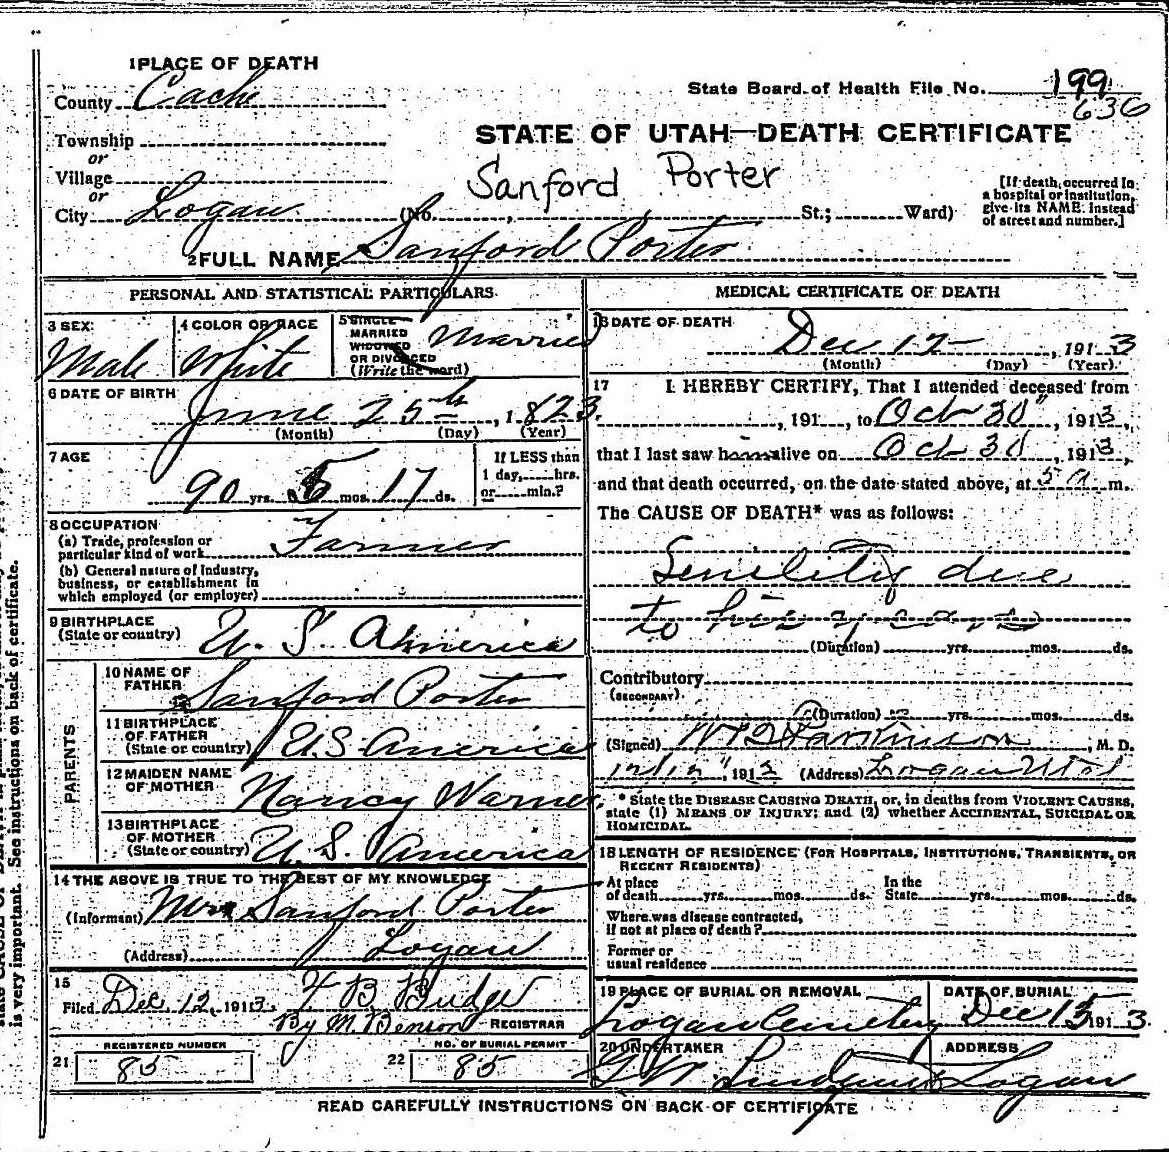 1 PLACE OF DEATH
County Cache
State Board of Health File No. 199
636
Township
or
Village
or
City Logan
STATE OF UTAH—DEATH CERTIFICATE
Sanford Porter
(No. , St.; Ward)
[If death occurred in a hospital or institution, give its NAME instead of street and number.]
2 FULL NAME Sanford Porter
PERSONAL AND STATISTICAL PARTICULARS
3 SEX: Male
4 COLOR OR RACE White
5 SINGLE
MARRIED
WIDOWED
OR DIVORCED
(Write the word)
Married
6 DATE OF BIRTH
June 25th, 1823.
(Month) (Day) (Year)
7 AGE
90 yrs. 5 mos. 17 ds.
If LESS than
1 day, hrs.
or min.?
8 OCCUPATION
(a) Trade, profession or
particular kind of work Farmer
(b) General nature of industry,
business, or establishment in
which employed (or employer)
9 BIRTHPLACE
(State or country) U. S. America
PARENTS
10 NAME OF
FATHER Sanford Porter
11 BIRTHPLACE
OF FATHER
(State or country) U.S. America
12 MAIDEN NAME
OF MOTHER Nancy Warner
13 BIRTHPLACE
OF MOTHER
(State or country) U. S. America
14 THE ABOVE IS TRUE TO THE BEST OF MY KNOWLEDGE
(Informant) Mrs Sanford Porter
(Address) Logan
15
Filed Dec. 12, 1913. B Budge
By M. Benson REGISTRAR
21 REGISTERED NUMBER
85
22 NO. OF BURIAL PERMIT
85
MEDICAL CERTIFICATE OF DEATH
16 DATE OF DEATH
Dec 12, 1913
(Month) (Day) (Year)
17 I HEREBY CERTIFY, That I attended deceased from
, 191 , to Oct 30", 1913,
that I last saw h alive on Oct 30, 1913,
and that death occurred, on the date stated above, at 5 A m.
The CAUSE OF DEATH* was as follows:
Senility due
to his years
(Duration) yrs. mos. ds.
Contributory
(SECONDARY)
(Duration) yrs. mos. ds.
(Signed) Parkinson, M. D.
, 191 (Address) Logan Utah
* State the DISEASE CAUSING DEATH, or, in deaths from VIOLENT CAUSES,
state (1) MEANS OF INJURY; and (2) whether ACCIDENTAL, SUICIDAL OR
HOMICIDAL.
18 LENGTH OF RESIDENCE (FOR HOSPITALS, INSTITUTIONS, TRANSIENTS, OR
RECENT RESIDENTS)
At place
of death yrs. mos. ds.
In the
State yrs. mos. ds.
Where was disease contracted,
if not at place of death?
Former or
usual residence
19 PLACE OF BURIAL OR REMOVAL
Logan Cemetery
DATE OF BURIAL
Dec 15 1913.
20 UNDERTAKER
ADDRESS
Logan
READ CAREFULLY INSTRUCTIONS ON BACK OF CERTIFICATE
is very important. See instructions on back of certificate.